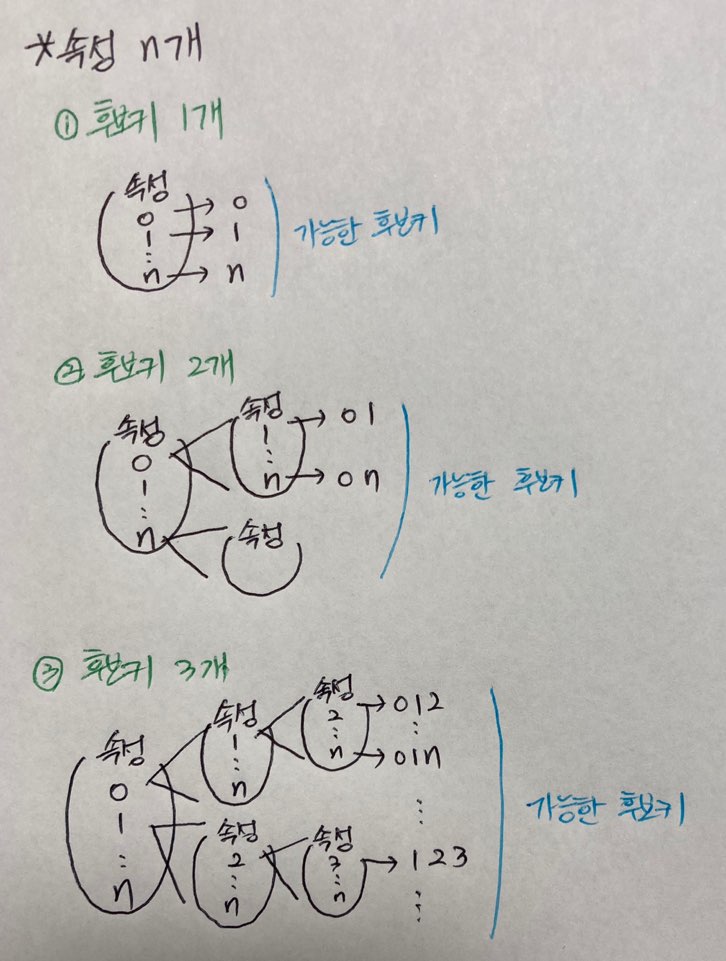 *속성 n개
① 후보키 1개
속성
0 → 0
1 → 1
⋮
n → n
가능한 후보키
② 후보키 2개
속성
0
1
⋮
n
속성
1 → 0 1
⋮
n → 0 n
속성
가능한 후보키
③ 후보키 3개
속성
0
1
⋮
n
속성
1
⋮
n
속성
2 → 0 1 2
⋮ ⋮
n → 0 1 n
⋮
속성
2
⋮
n
속성
3 → 1 2 3
⋮ ⋮
n
가능한 후보키